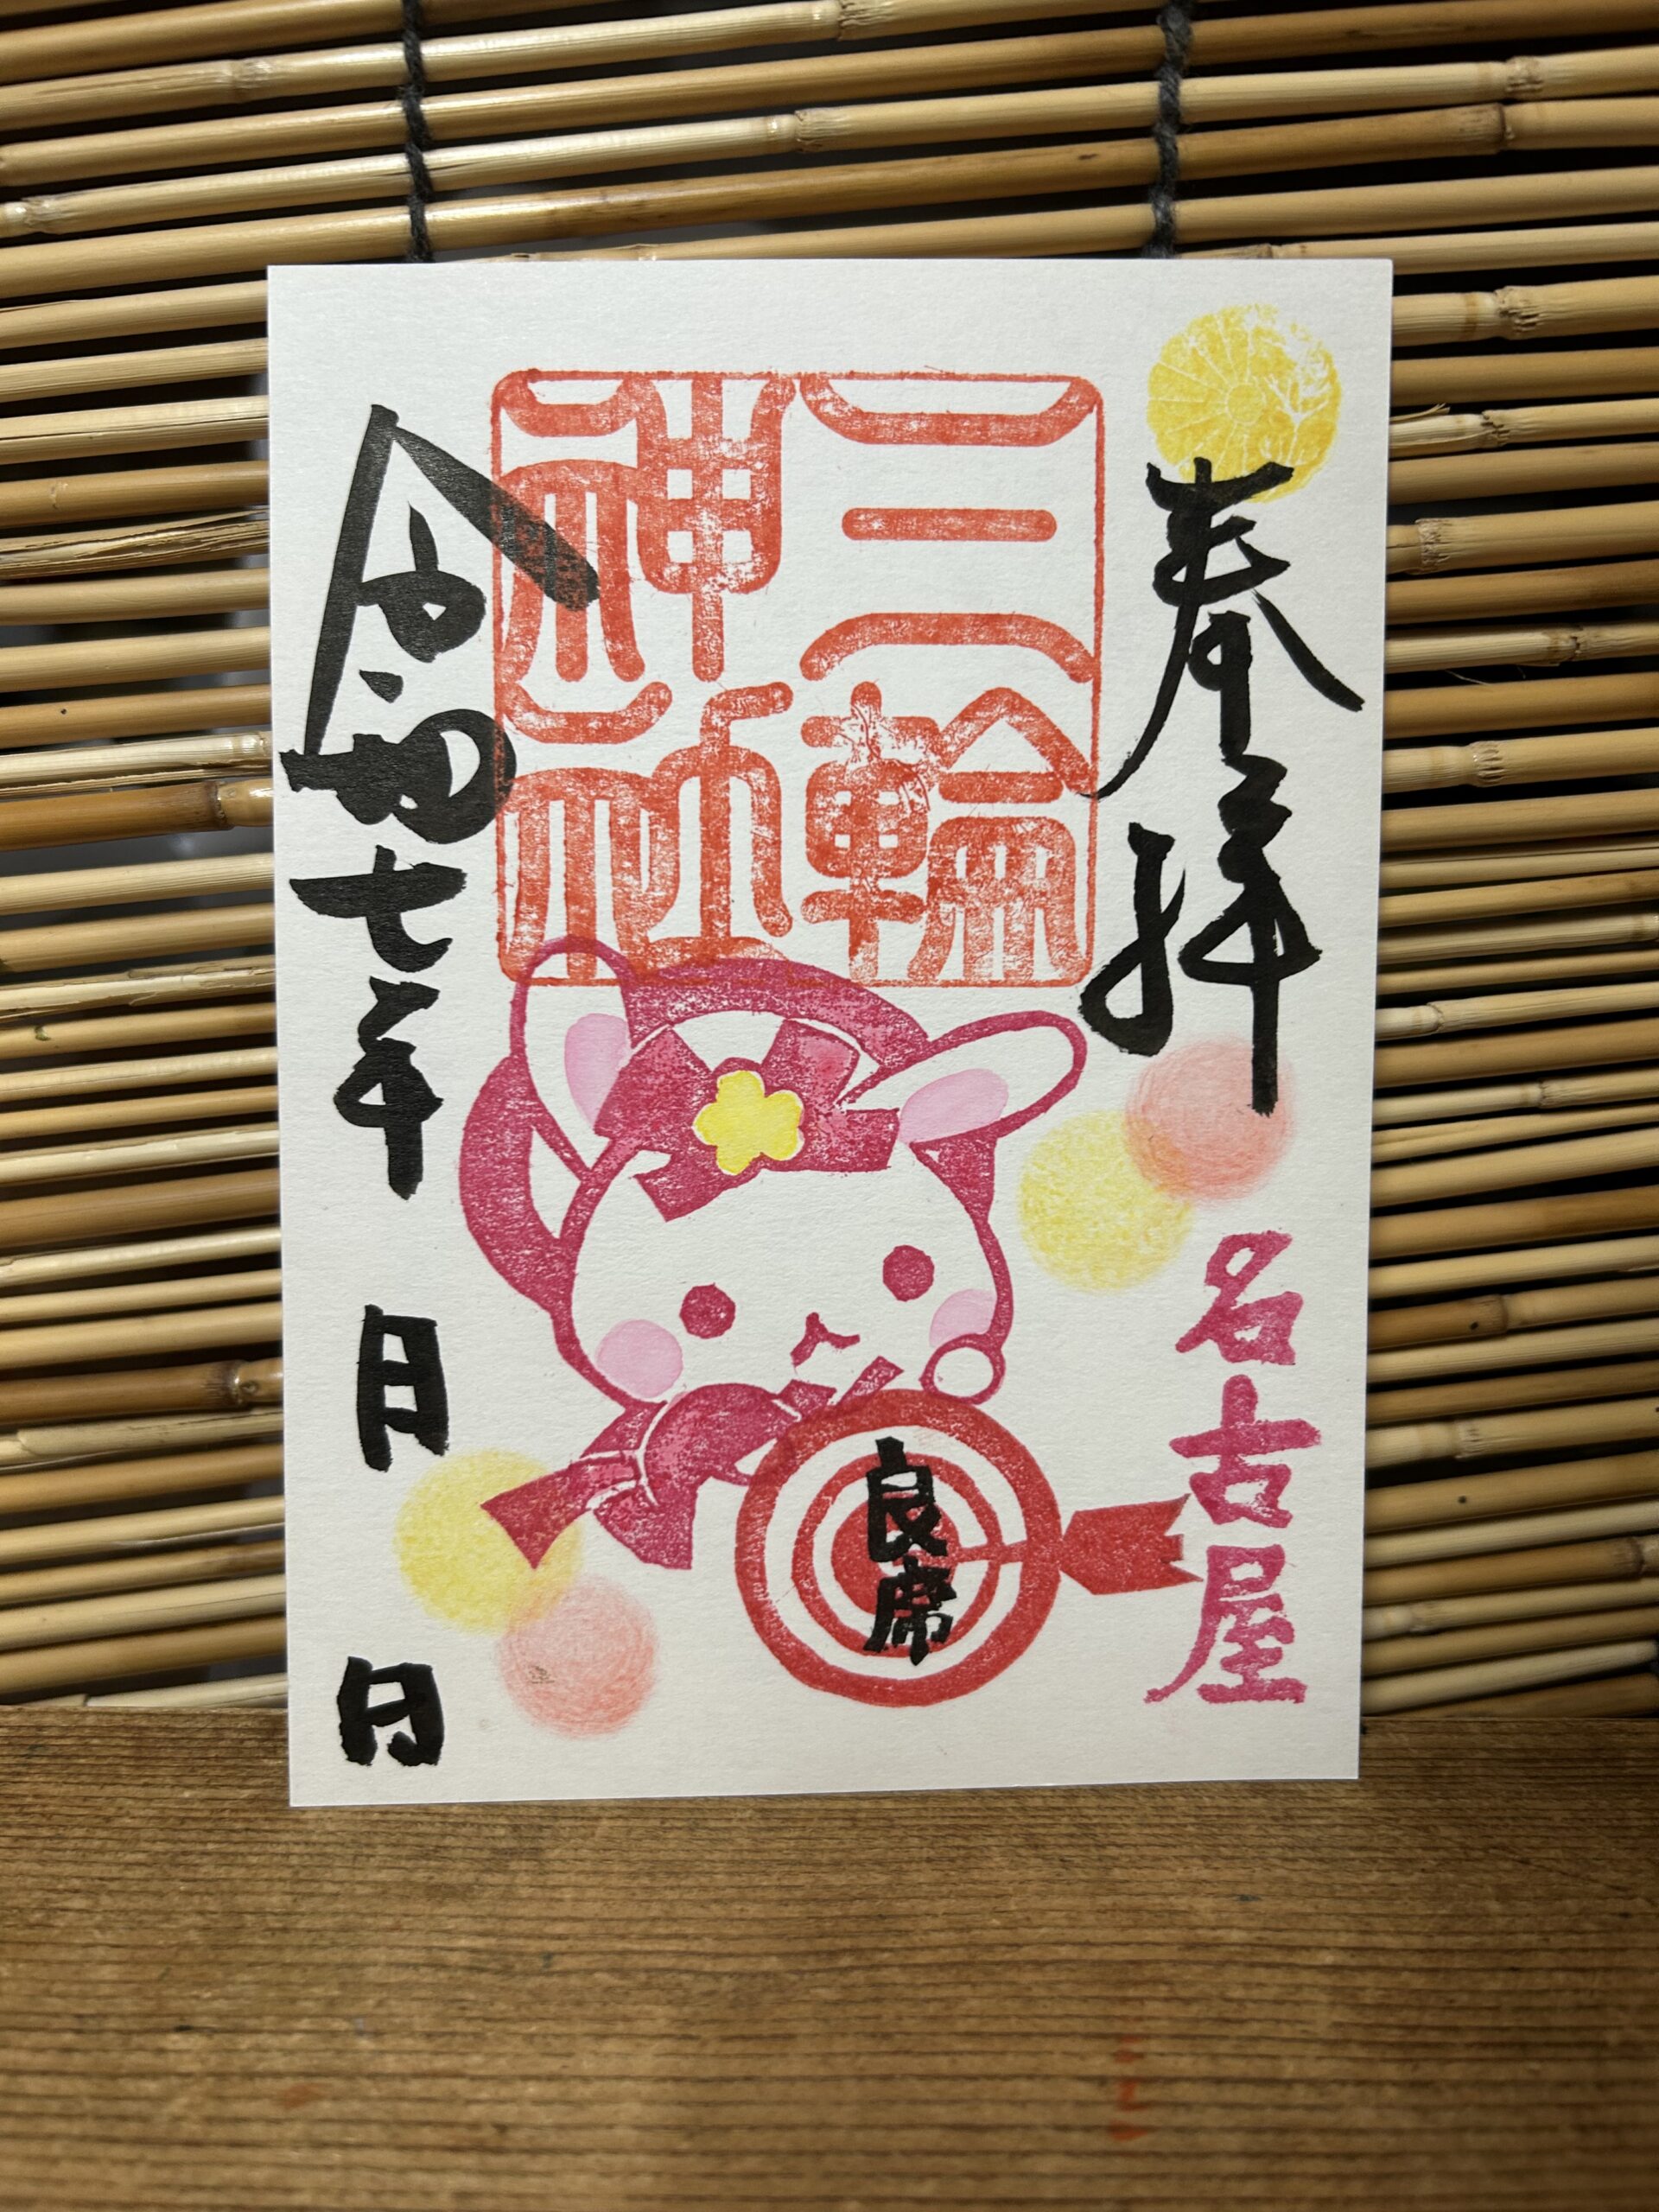 奉拝
名古屋
三輪
神社
良席
令和七年 月 日